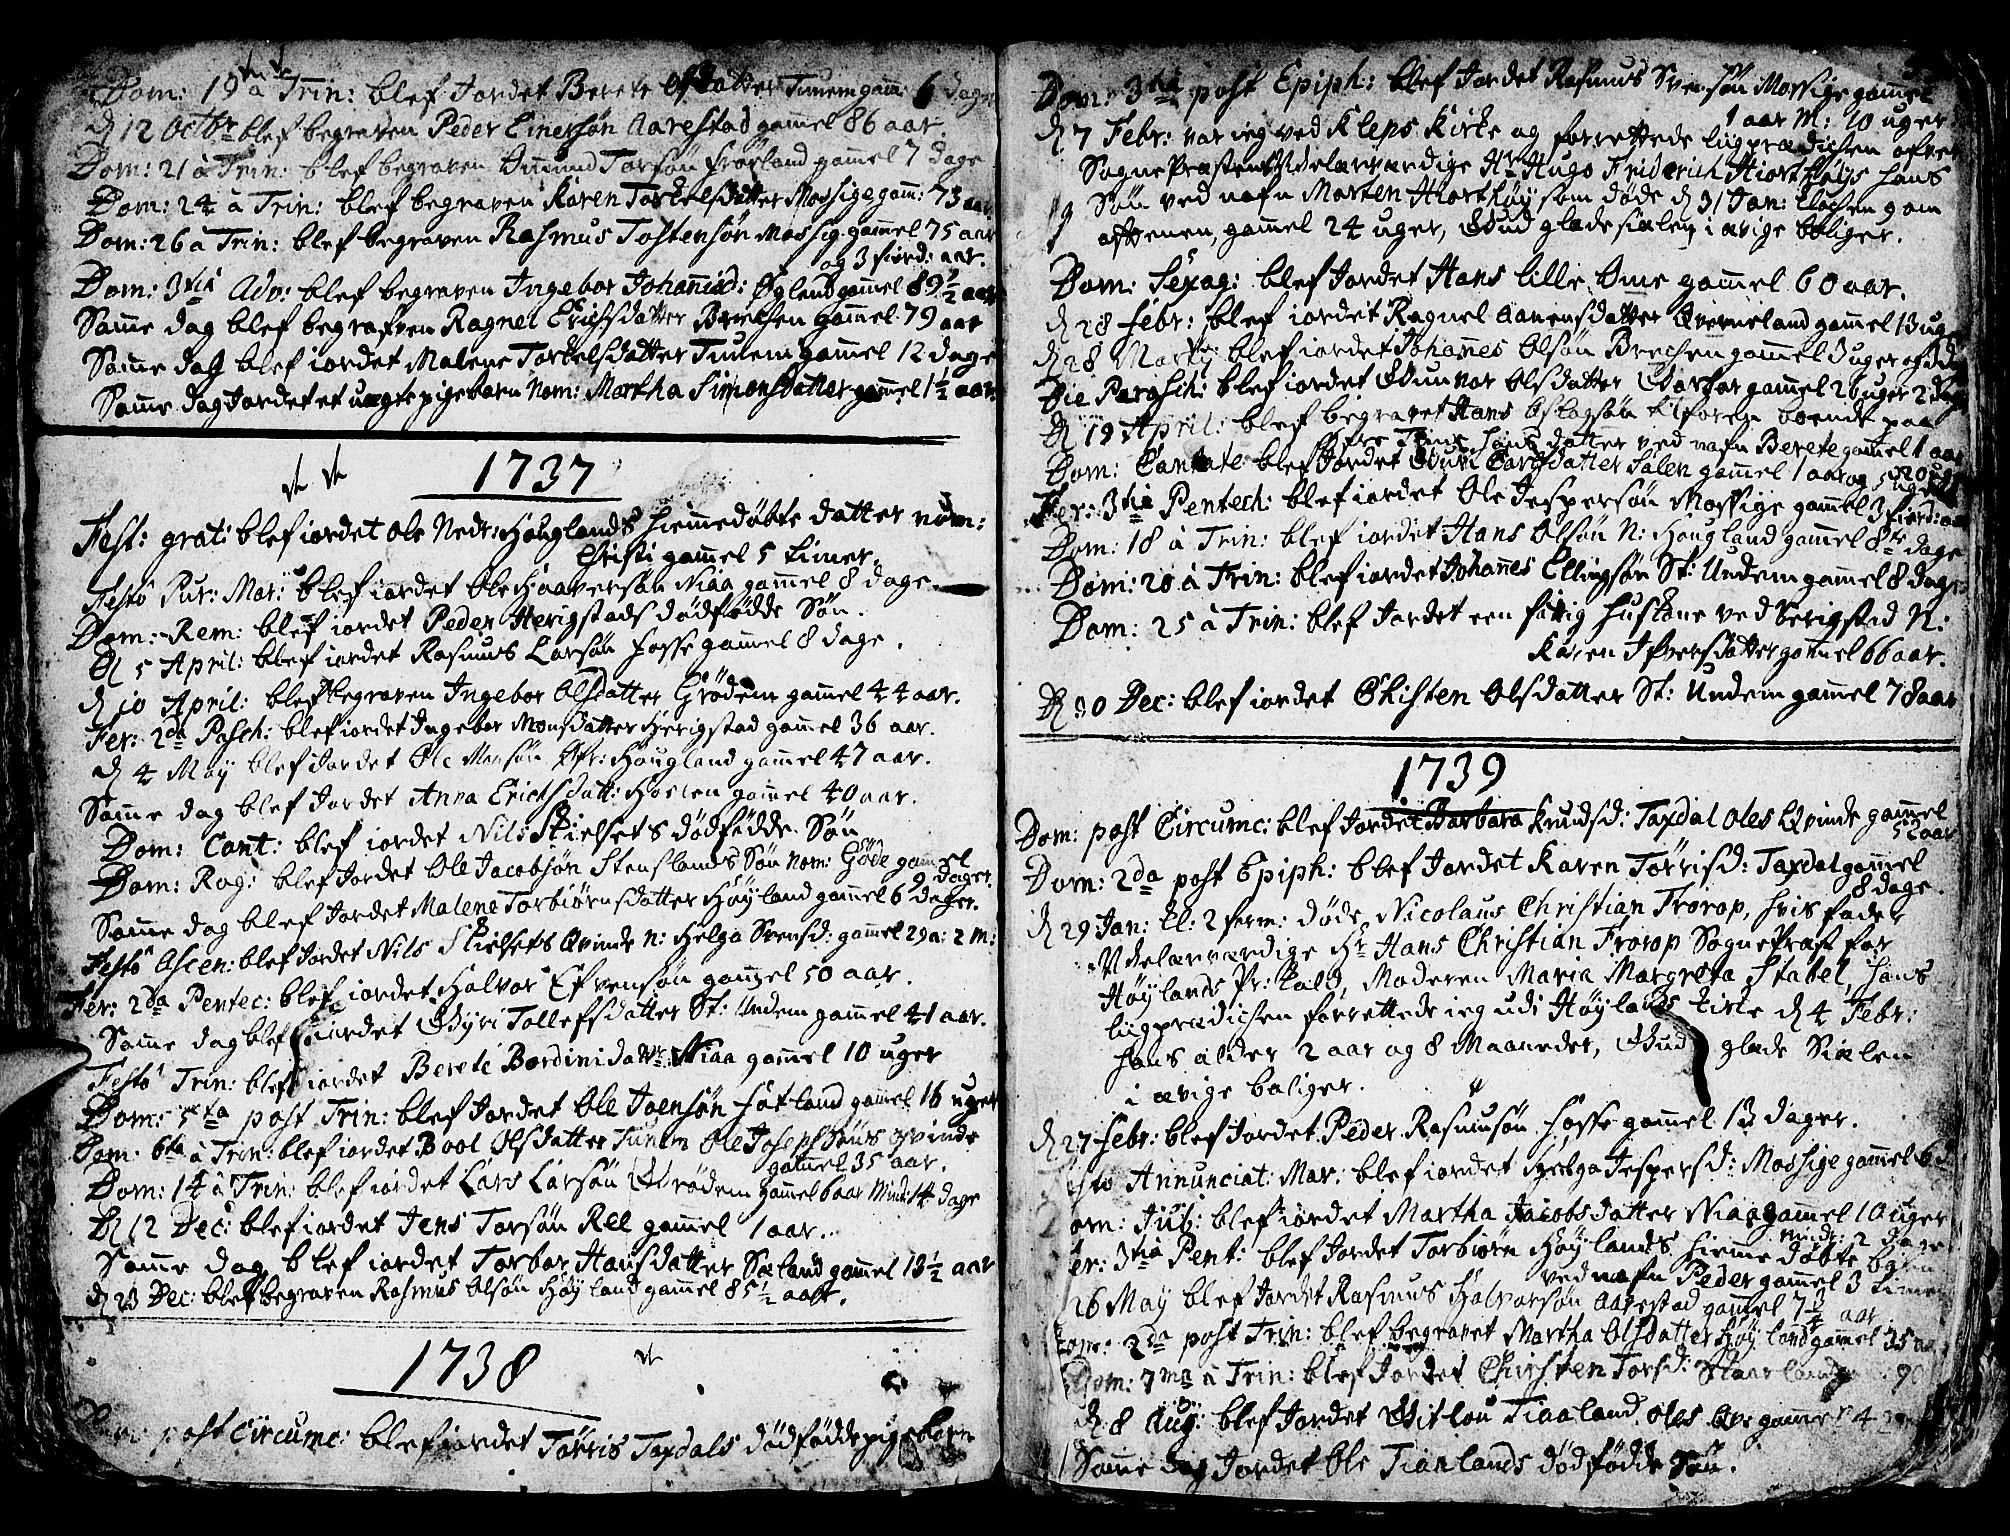 Dom: 19 à Trin: blef Jordet Berete Olsdatter Tunem gam: 6 dager
d 12 Octbr blef begraven Peder Einersøn Aarestad gammel 86 aar.
Dom: 21 à Trin: blef begraven Omund Torsøn Frøyland gammel 7 dage
Dom: 24 à Trin: blef begraven Karen Torkelsdatter Mossige gam: 73 aar
Dom: 26 à Trin: blef begraven Rasmus Tostensøn Mossig gammel 75 aar
og 3 fierd: aar.
Dom: 3tia Adv: blef begraven Ingebor Johannisd: Øgland gammel 89 1/2 aar
Samme dag blef begrafven Ragnel Erichsdatter Brechen gammel 79 aar
Samme dag blef iordet Malene Torkelsdatter Tunem gammel 12 dage
Samme dag Jordet et uægte pigebarn Nom: Martha Simonsdatter gammel 1 1/2 aar.
1737
Fest: grat: blef iordet Ole Nedr: Houglands hiemmedøbte datter nom:
Christi gammel 5 timer.
Festo Pur: Mar: blef iordet Ole Haaversøn Niaa gammel 8 dage.
Dom: Rem: blef iordet Peder Herigstads dødfødde Søn.
d 5 April: blef iordet Rasmus Larsøn Fosse gammel 8 dage.
d 10 April: blef begraven Ingebor Olsdatter Grødem gammel 44 aar.
Fer: 2da Pasch: blef iordet Ingebor Monsdatter Herigstad gammel 36 aar.
d 4 May blef Jordet Ole Monsøn Øfr: Hougland gammel 47 aar.
Samme dag blef Jordet Anna Erichsdatt: Hoelen gammel 40 aar.
Dom: Cant: blef iordet Nils Skielsets dødfødde Søn
Dom: Rog: blef Jordet Ole Jacobsøn Stenslands Søn Nom: Gøde gammel
9 dager.
Samme dag blef Jordet Malene Torbiørnsdatter Høyland gammel 6 dager.
Festo Ascen: blef Jordet Nils Skielsets Qvinde n: Helga Svensd: gammel 29 a: 2 m:
Fer: 2da Pentec: blef iordet Halvor Efvensøn gammel 50 aar.
Samme dag blef iordet Gyri Tollefsdatter St: Undem gammel 41 aar.
Festo Trin: blef iordet Berete Bordinidattr Niaa gammel 10 uger
Dom: 5ta post Trin: blef Jordet Ole Joensøn Hatland gammel 16 uger
Dom. 6ta à Trin: blef iordet Bool Olsdatter Tunem Ole Josephsøns qvinde
gammel 35 aar.
Dom: 14 à Trin: blef iordet Lars Larsøn Grødem gammel 6 aar Mind: 14 dage
d 12 Dec: blef iordet Jens Torsøn Ree gammel 1 aar.
Samme dag blef iordet Torbor Hansdatter Sæland gammel 13 1/2 aar
d 23 Dec: blef begraven Rasmus Olsøn Høyland gammel 85 1/2 aar.
1738
post Circumc: blef iordet Tørris Taxdals dødfødde pigebarn
Dom: 3tia post Epiph: blef Jordet Rasmus Svensøn Mossige gammel
1 aar M: 10 uger
d 7 Febr: var ieg ved Kleps Kirke og forrettede liigprædichen ofver
SognePræstens Vdelærværdige Hr Hugo Friderich Hiorthøys hans
Søn ved nafn Morten Hiorthøy som døde d 31 Jan: klochen 9 om
aftenen, gammel 24 uger, Gud glæde siælen i ævige boliger.
Dom: Sexag: blef Jordet Hans lille Ome gammel 60 aar.
d 28 Febr: blef iordet Ragnel Aanensdatter Qverneland gammel 13 uger
d 28 Marty: blef iordet Johannes Olsøn Brechen gammel 3 uger og 3 d
Die Parasch: blef iordet Gunvor Olsdatter gammel 26 uger 2 dage
d 19 April: blef begravet Hans Aslagsøn tilforen boende paa
Øfre Time hans datter ved nafn Berete gammel 1 aar
20 uger
Dom: Cantate blef Jordet Guri Larsdatter Salen gammel 1 aar og 5 uger
Fer: 3tia Pentech: blef iordet Ole Jespersøn Mossige gammel 3 fierd: aar
Dom: 18 à Trin: blef iordet Hans Olsøn N: Hougland gammel 8te dage
Dom: 20 à Trin: blef iordet Johannes Ellingsøn St: Undem gammel 8 dage.
Dom: 25 à Trin: blef Jordet een fattig huskone ved Serigstad N:
Karen Ifversdatter gammel 66 aar.
d 30 Dec: blef iordet Chisten Olsdatter St: Undem gammel 78 aar
1739
Dom: post Circumc: blef Jordet Barbara Knudsd: Taxdal Oles Qvinde gammel
52 aar
Dom: 2da post Epiph: blef Jordet Karen Tørrisd: Taxdal gammel
8 dage.
d 29 Jan: kl: 2 form: døde Nicolaus Christian Trorop, hvis fader
Vdelærværdige Hr Hans Christian Trorop SognePræst for
Høylands Pr: kald, Moderen Maria Margreta Stabel, hans
liigprædichen forrettede ieg udi Høylands kirke d 4 Febr:
hans alder 2 aar og 8 Maaneder, Gud glæde Siælen
i ævige boliger.
d 27 Febr: blef Jordet Peder Rasmusøn Fosse gammel 13 dager.
Festo Annunciat: Mar. blef iordet Helga Jespersd: Mossige gammel 6 d
Dom: Jub: blef iordet Martha Jacobsdatter Niaa gammel 10 uger
Mind: 2 dage
Fer: 3tia Pent: blef Jordet Torbiørn Høylands hieme døbte barn
ved nafn Peder gammel 3 timer
26 May blef Jordet Rasmus Halvorsøn Aarestad gammel 7 3/4 aar
Dom: 2da post Trin: blef begravet Martha Olsdatter Høyland gammel 35 aar
Dom: 7ma à Trin: blef Jordet Chirsten Torsd: 90
d 8 Aug: blef Jordet Gitlou Tiaaland Oles Qv: gammel 42
Samme dag Jordet Ole Tiaalands dødfødde Søn.